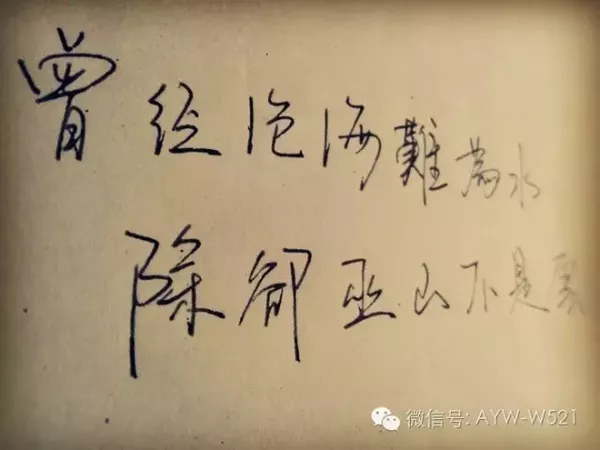 曾经沧海難為水
除卻巫山不是雲
微信号: AYW-W521